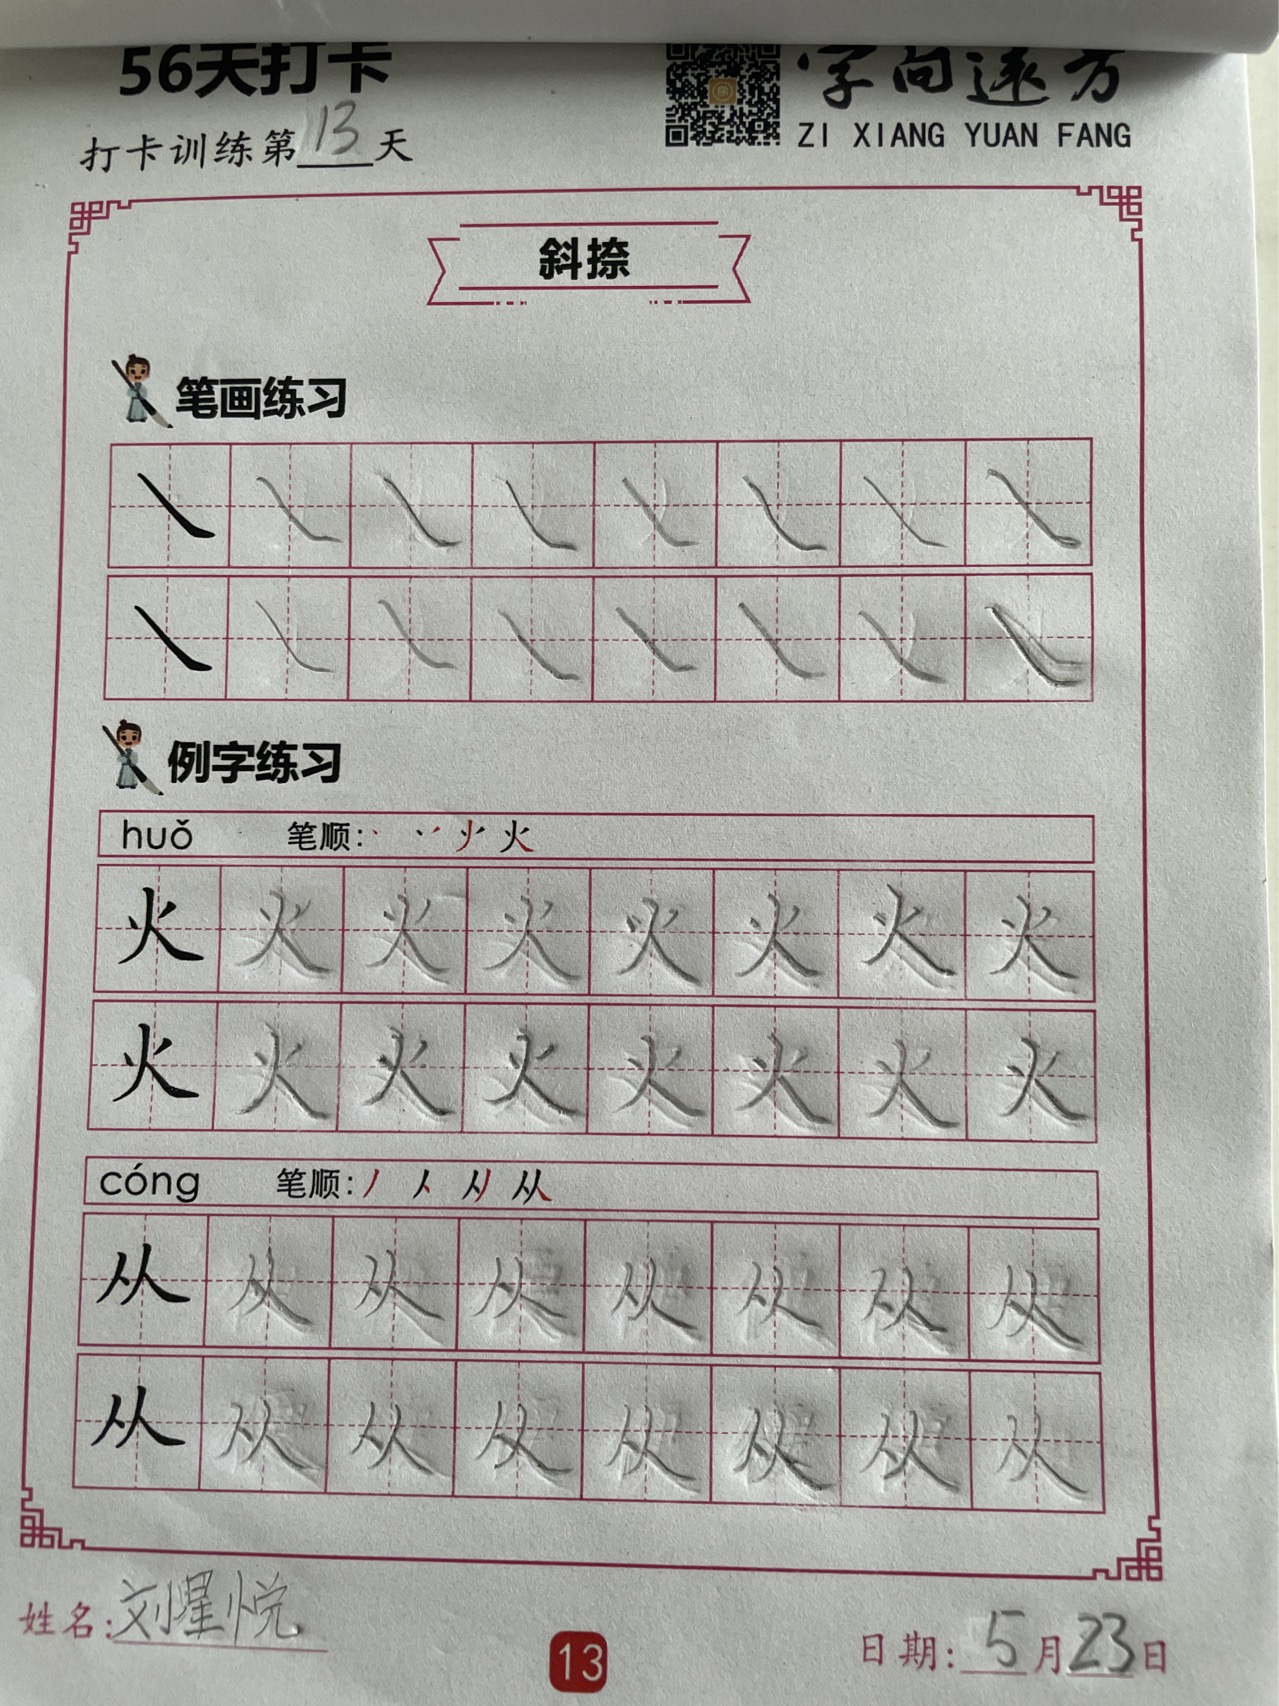 56天打卡
字向远方
打卡训练第13天
ZI XIANG YUAN FANG
斜捺
笔画练习
例字练习
huǒ 笔顺: 火
火 火 火 火 火 火 火 火
火 火 火 火 火 火 火 火
cóng 笔顺: 丿 人 从
从 从 从 从 从 从 从 从
从 从 从 从 从 从 从 从
姓名:刘星悦
13
日期:5月23日